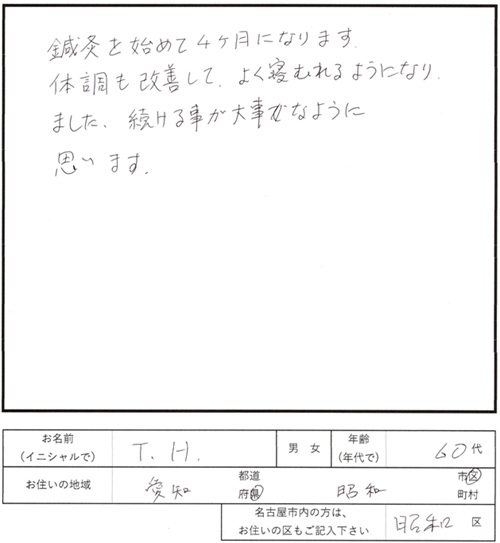 鍼灸を始めて4ヶ月になります.
体調も改善して、よく寝むれるようになり
ました、続ける事が大事だなように
思います.
お名前
(イニシャルで) T. H. 男 女 年齢
(年代で) 60代
お住いの地域 愛知 都道
府県 昭和 市区
町村
名古屋市内の方は、
お住いの区もご記入下さい 昭和 区